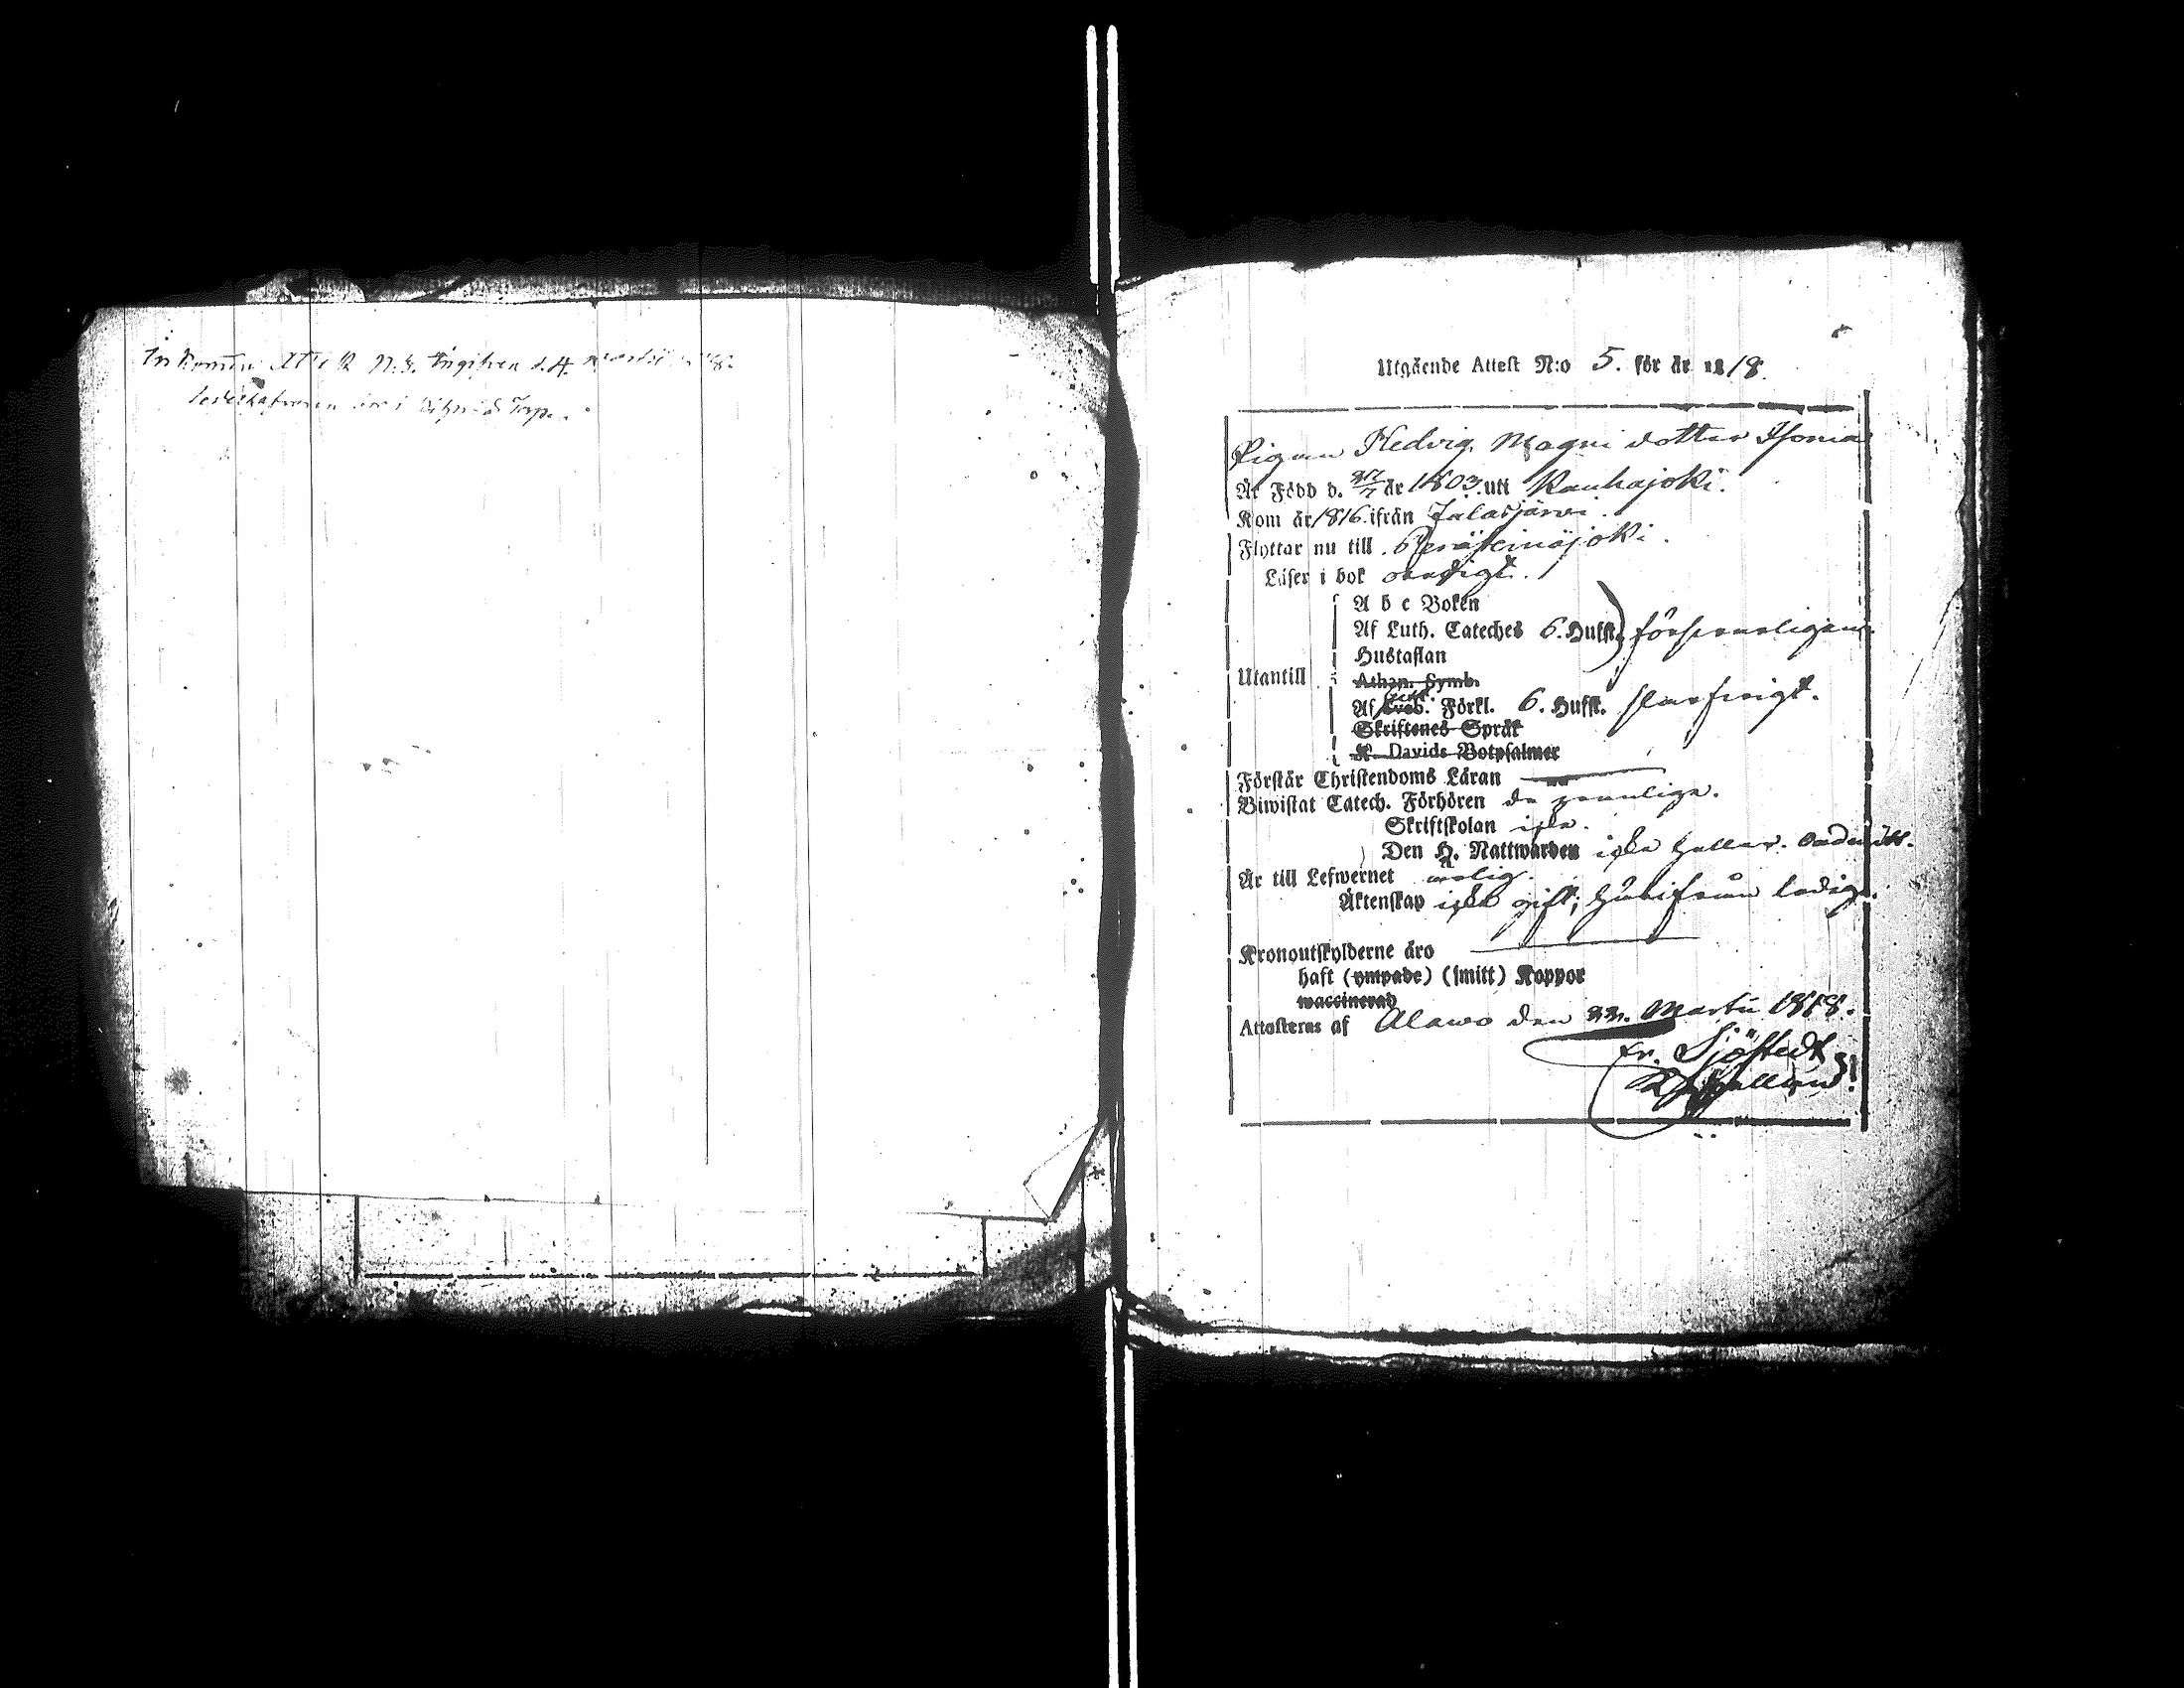 Inkommen Att: N:3. ingifven d. 4.
i Torp.
Utgående Attest N:o 5. för år 1818.
Pigan Hedvig Magni dotter Isonia
Är Född d. 27/7 år 1803. uti Kauhajoki.
Kom år 1816. ifrån Jalasjärvi.
Flyttar nu till Peräseinäjoki.
Läser i bok ordigt.
A b c Boken
Af Luth. Cateches 6. Hufst. försvarligen
Hustaflan
Utantill
Athan. Symb.
Af Sveb. Förkl. 6. Hufst. slarfvigt.
Skriftenes Språk
K. Davids Botpsalmer
Förstår Christendoms Läran
Biwistat Catech. Förhören de
Skriftskolan icke.
Den H. Nattwarden icke heller. Oadmitt.
Är till Lefwernet ärlig.
Äktenskap icke gift; härifrån ledig.
Kronoutskylderne äro
haft (ympade) (smitt) Koppor
waccinerad
Attesteras af Alavo den 22. Martii 1818.
Er. Sjöstedt